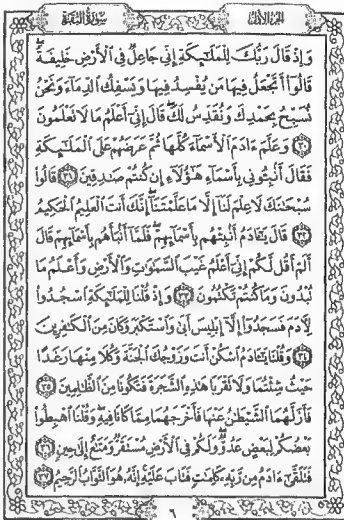 الجزء الأول
سورة البقرة
وَإِذْ قَالَ رَبُّكَ لِلْمَلَٰٓئِكَةِ إِنِّي جَاعِلٌ فِي ٱلْأَرْضِ خَلِيفَةً ۖ
قَالُوٓا۟ أَتَجْعَلُ فِيهَا مَن يُفْسِدُ فِيهَا وَيَسْفِكُ ٱلدِّمَآءَ وَنَحْنُ
نُسَبِّحُ بِحَمْدِكَ وَنُقَدِّسُ لَكَ ۖ قَالَ إِنِّيٓ أَعْلَمُ مَا لَا تَعْلَمُونَ
٣٠ وَعَلَّمَ ءَادَمَ ٱلْأَسْمَآءَ كُلَّهَا ثُمَّ عَرَضَهُمْ عَلَى ٱلْمَلَٰٓئِكَةِ
فَقَالَ أَنۢبِـُٔونِي بِأَسْمَآءِ هَٰٓؤُلَآءِ إِن كُنتُمْ صَٰدِقِينَ ٣١ قَالُوا۟
سُبْحَٰنَكَ لَا عِلْمَ لَنَآ إِلَّا مَا عَلَّمْتَنَآ ۖ إِنَّكَ أَنتَ ٱلْعَلِيمُ ٱلْحَكِيمُ
٣٢ قَالَ يَٰٓـَٔادَمُ أَنۢبِئْهُم بِأَسْمَآئِهِمْ ۖ فَلَمَّآ أَنۢبَأَهُم بِأَسْمَآئِهِمْ قَالَ
أَلَمْ أَقُل لَّكُمْ إِنِّيٓ أَعْلَمُ غَيْبَ ٱلسَّمَٰوَٰتِ وَٱلْأَرْضِ وَأَعْلَمُ مَا
تُبْدُونَ وَمَا كُنتُمْ تَكْتُمُونَ ٣٣ وَإِذْ قُلْنَا لِلْمَلَٰٓئِكَةِ ٱسْجُدُوا۟
لِـَٔادَمَ فَسَجَدُوٓا۟ إِلَّآ إِبْلِيسَ أَبَىٰ وَٱسْتَكْبَرَ وَكَانَ مِنَ ٱلْكَٰفِرِينَ
٣٤ وَقُلْنَا يَٰٓـَٔادَمُ ٱسْكُنْ أَنتَ وَزَوْجُكَ ٱلْجَنَّةَ وَكُلَا مِنْهَا رَغَدًا
حَيْثُ شِئْتُمَا وَلَا تَقْرَبَا هَٰذِهِ ٱلشَّجَرَةَ فَتَكُونَا مِنَ ٱلظَّٰلِمِينَ ٣٥
فَأَزَلَّهُمَا ٱلشَّيْطَٰنُ عَنْهَا فَأَخْرَجَهُمَا مِمَّا كَانَا فِيهِ ۖ وَقُلْنَا ٱهْبِطُوا۟
بَعْضُكُمْ لِبَعْضٍ عَدُوٌّ ۖ وَلَكُمْ فِي ٱلْأَرْضِ مُسْتَقَرٌّ وَمَتَٰعٌ إِلَىٰ حِينٍ ٣٦
فَتَلَقَّىٰٓ ءَادَمُ مِن رَّبِّهِ كَلِمَٰتٍ فَتَابَ عَلَيْهِ ۚ إِنَّهُ هُوَ ٱلتَّوَّابُ ٱلرَّحِيمُ ٣٧
٦